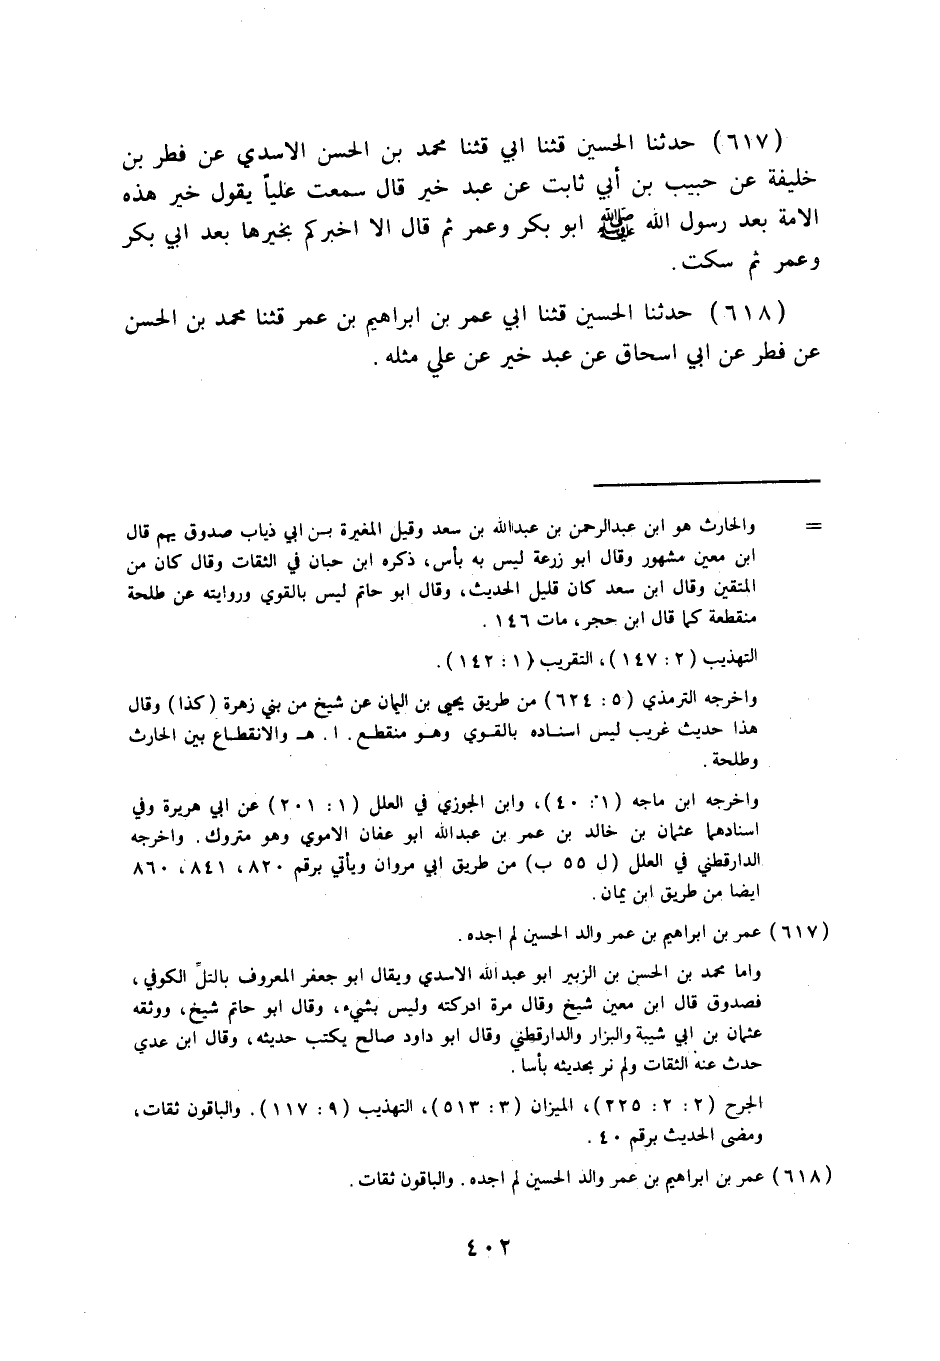 (٦١٧) حدثنا الحسين قثنا ابي قثنا محمد بن الحسن الاسدي عن فطر بن
خليفة عن حبيب بن أبي ثابت عن عبد خير قال سمعت علياً يقول خير هذه
الامة بعد رسول الله ﷺ ابو بكر وعمر ثم قال الا اخبركم بخيرها بعد ابي بكر
وعمر ثم سكت.
(٦١٨) حدثنا الحسين قثنا ابي عمر بن ابراهيم بن عمر قثنا محمد بن الحسن
عن فطر عن ابي اسحاق عن عبد خير عن علي مثله.
= والحارث هو ابن عبدالرحمن بن عبدالله بن سعد وقيل المغيرة بن ابي ذياب صدوق يهم قال
ابن معين مشهور وقال ابو زرعة ليس به بأس، ذكره ابن حبان في الثقات وقال كان من
المتقين وقال ابن سعد كان قليل الحديث، وقال ابو حاتم ليس بالقوي وروايته عن طلحة
منقطعة كما قال ابن حجر، مات ١٤٦.
التهذيب (٢: ١٤٧)، التقريب (١: ١٤٢).
واخرجه الترمذي (٥: ٦٢٤) من طريق يحيى بن اليمان عن شيخ من بني زهرة (كذا) وقال
هذا حديث غريب ليس اسناده بالقوي وهو منقطع. ا. هـ والانقطاع بين الحارث
وطلحة.
واخرجه ابن ماجه (١: ٤٠)، وابن الجوزي في العلل (١: ٢٠١) عن ابي هريرة وفي
اسنادهما عثمان بن خالد بن عمر بن عبدالله ابو عفان الاموي وهو متروك. واخرجه
الدارقطني في العلل (ل ٥٥ ب) من طريق ابي مروان ويأتي برقم ٨٢٠، ٨٤١، ٨٦٠
ايضا من طريق ابن يمان.
(٦١٧) عمر بن ابراهيم بن عمر والد الحسين لم اجده.
واما محمد بن الحسن بن الزبير ابو عبدالله الاسدي ويقال ابو جعفر المعروف بالتلّ الكوفي،
فصدوق قال ابن معين شيخ وقال مرة ادركته وليس بشيء، وقال ابو حاتم شيخ، ووثقه
عثمان بن ابي شيبة والبزار والدارقطني وقال ابو داود صالح يكتب حديثه، وقال ابن عدي
حدث عنه الثقات ولم نر بحديثه بأسا.
الجرح (٢: ٢: ٢٢٥)، الميزان (٣: ٥١٣)، التهذيب (٩: ١١٧). والباقون ثقات،
ومضى الحديث برقم ٤٠.
(٦١٨) عمر بن ابراهيم بن عمر والد الحسين لم اجده. والباقون ثقات.
٤٠٢